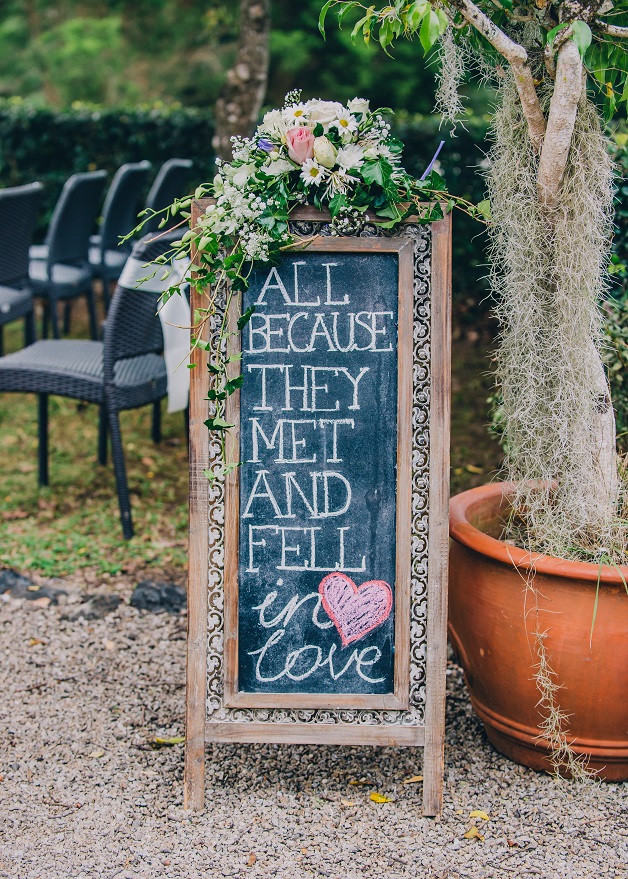 ALL
BECAUSE
THEY
MET
AND
FELL
in
love